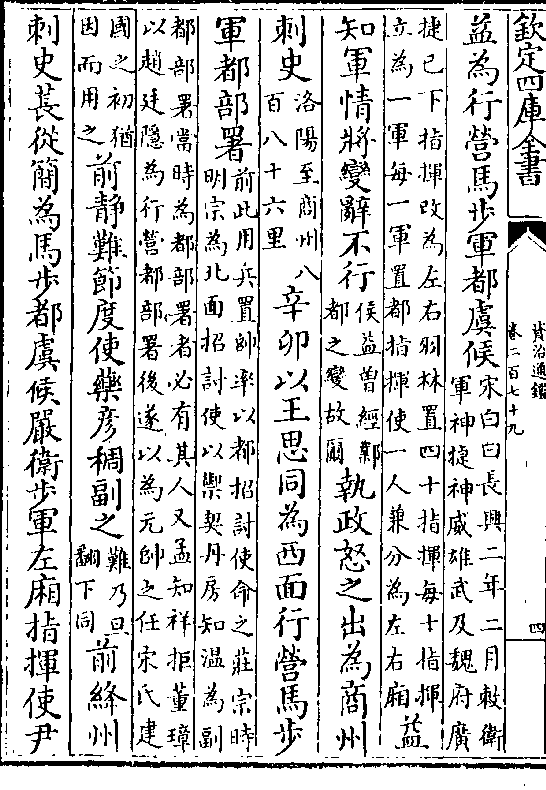 欽定四庫全書
資治通鑑
卷二百七十九
四
益為行營馬步軍都虞候宋白曰長興二年二月敕衛
軍神捷神威雄武及魏府廣
捷已下指揮改為左右羽林置四十指揮每十指揮
立為一軍每一軍置都指揮使一人兼分為左右廂益
知軍情將變辭不行侯益曽經鄴
都之變故爾執政怒之出為商州
刺史洛陽至商州八
百八十六里辛卯以王思同為西面行營馬步
軍都部署前此用兵置帥率以都招討使命之莊宗時
明宗為北面招討使以禦契丹房知温為副
都部署當時為都部署者必有其人又孟知祥拒董璋
以趙廷隱為行營都部署後遂以為元帥之任宋氏建
國之初猶
因而用之前静難節度使藥彦稠副之難乃旦
翻下同前絳州
刺史萇從簡為馬步都虞候嚴衛步軍左廂指揮使尹